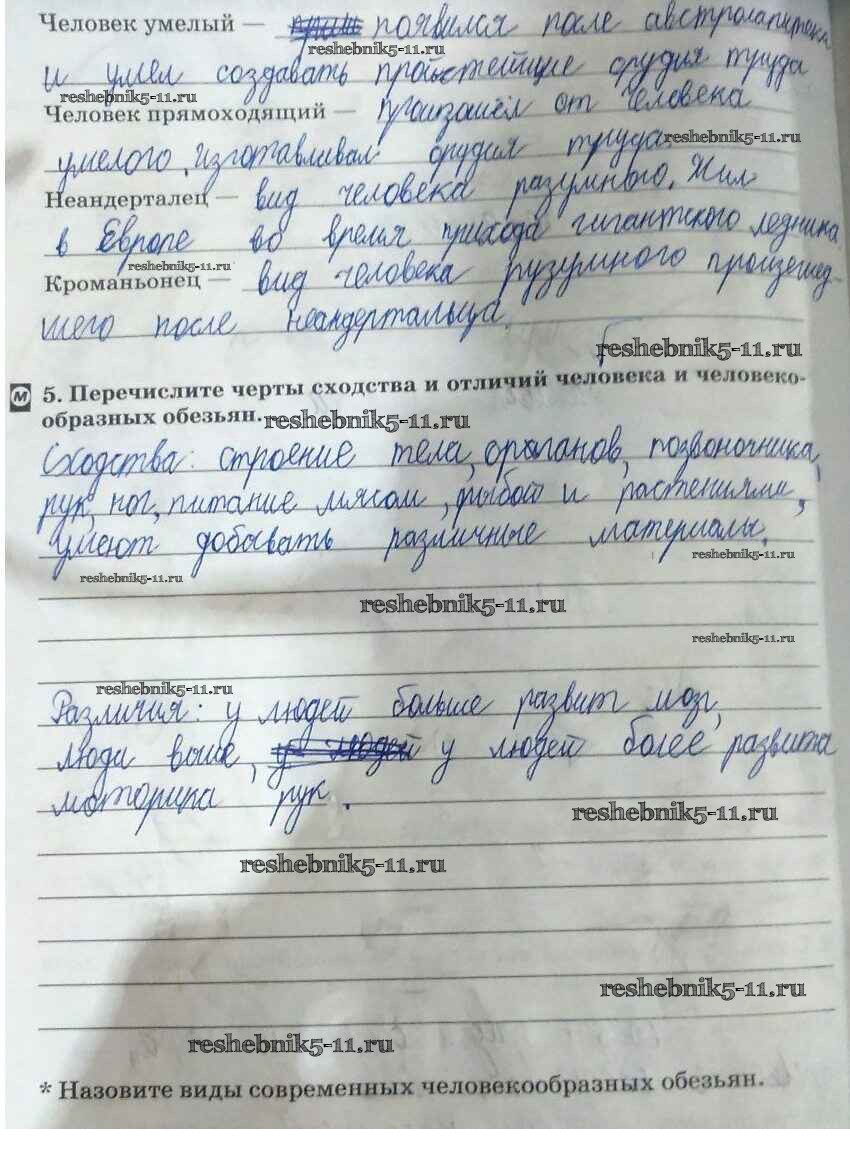 Человек умелый — появился после австролапитека
reshebnik5-11.ru
и умел создавать простейшие орудия труда
reshebnik5-11.ru
Человек прямоходящий — произошёл от Человека
reshebnik5-11.ru
умелого, изготавливал орудия труда.
Неандерталец — вид человека разумного. Жил
в Европе во время прихода гигантского ледника
reshebnik5-11.ru
Кроманьонец — вид человека рузумного произошед-
шего после неандертальца.
reshebnik5-11.ru
м 5. Перечислите черты сходства и отличий человека и человеко-
образных обезьян. reshebnik5-11.ru
Сходства: строение тела, органов, позвоночника,
рук, ног, питание мясом, рыбой и растениями,
умеют добывать различные материалы.
reshebnik5-11.ru
reshebnik5-11.ru
reshebnik5-11.ru
reshebnik5-11.ru
reshebnik5-11.ru
Различия: у людей больше развит мозг,
люди выше, у людей у людей более развита
моторика рук.
reshebnik5-11.ru
reshebnik5-11.ru
reshebnik5-11.ru
reshebnik5-11.ru
* Назовите виды современных человекообразных обезьян.